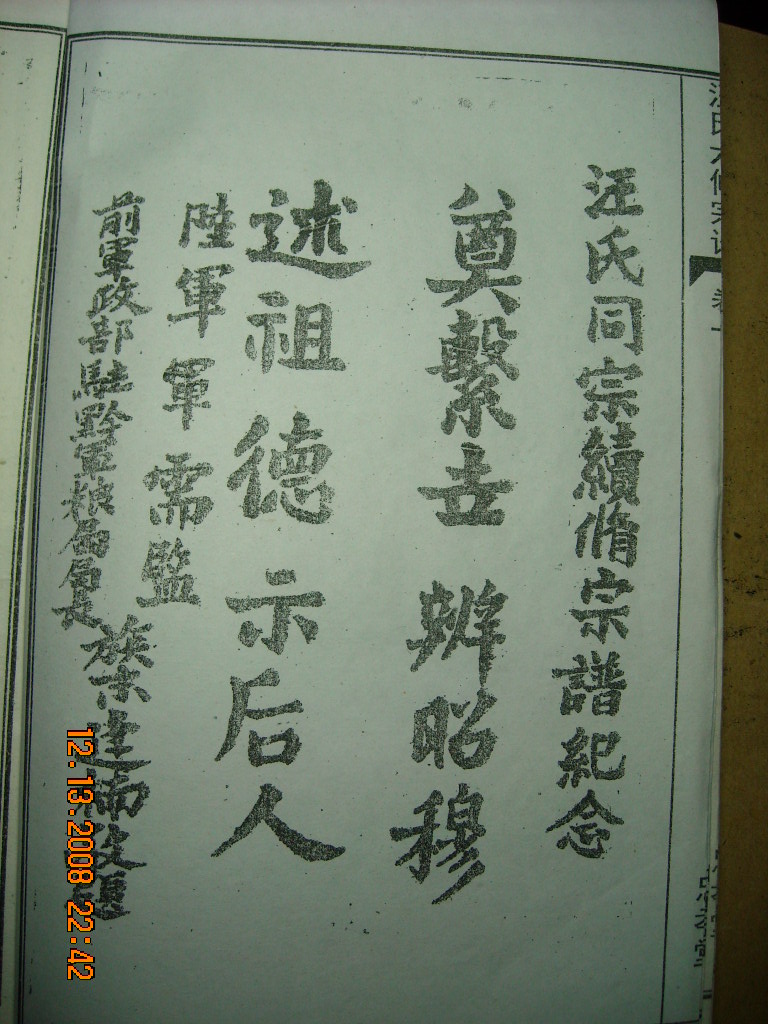 卷一
汪氏同宗續脩宗譜紀念
奠繫世 辨昭穆
述祖德 示后人
陸軍軍需監
前軍政部駐黔軍糧局局長
12.13.2008 22:42